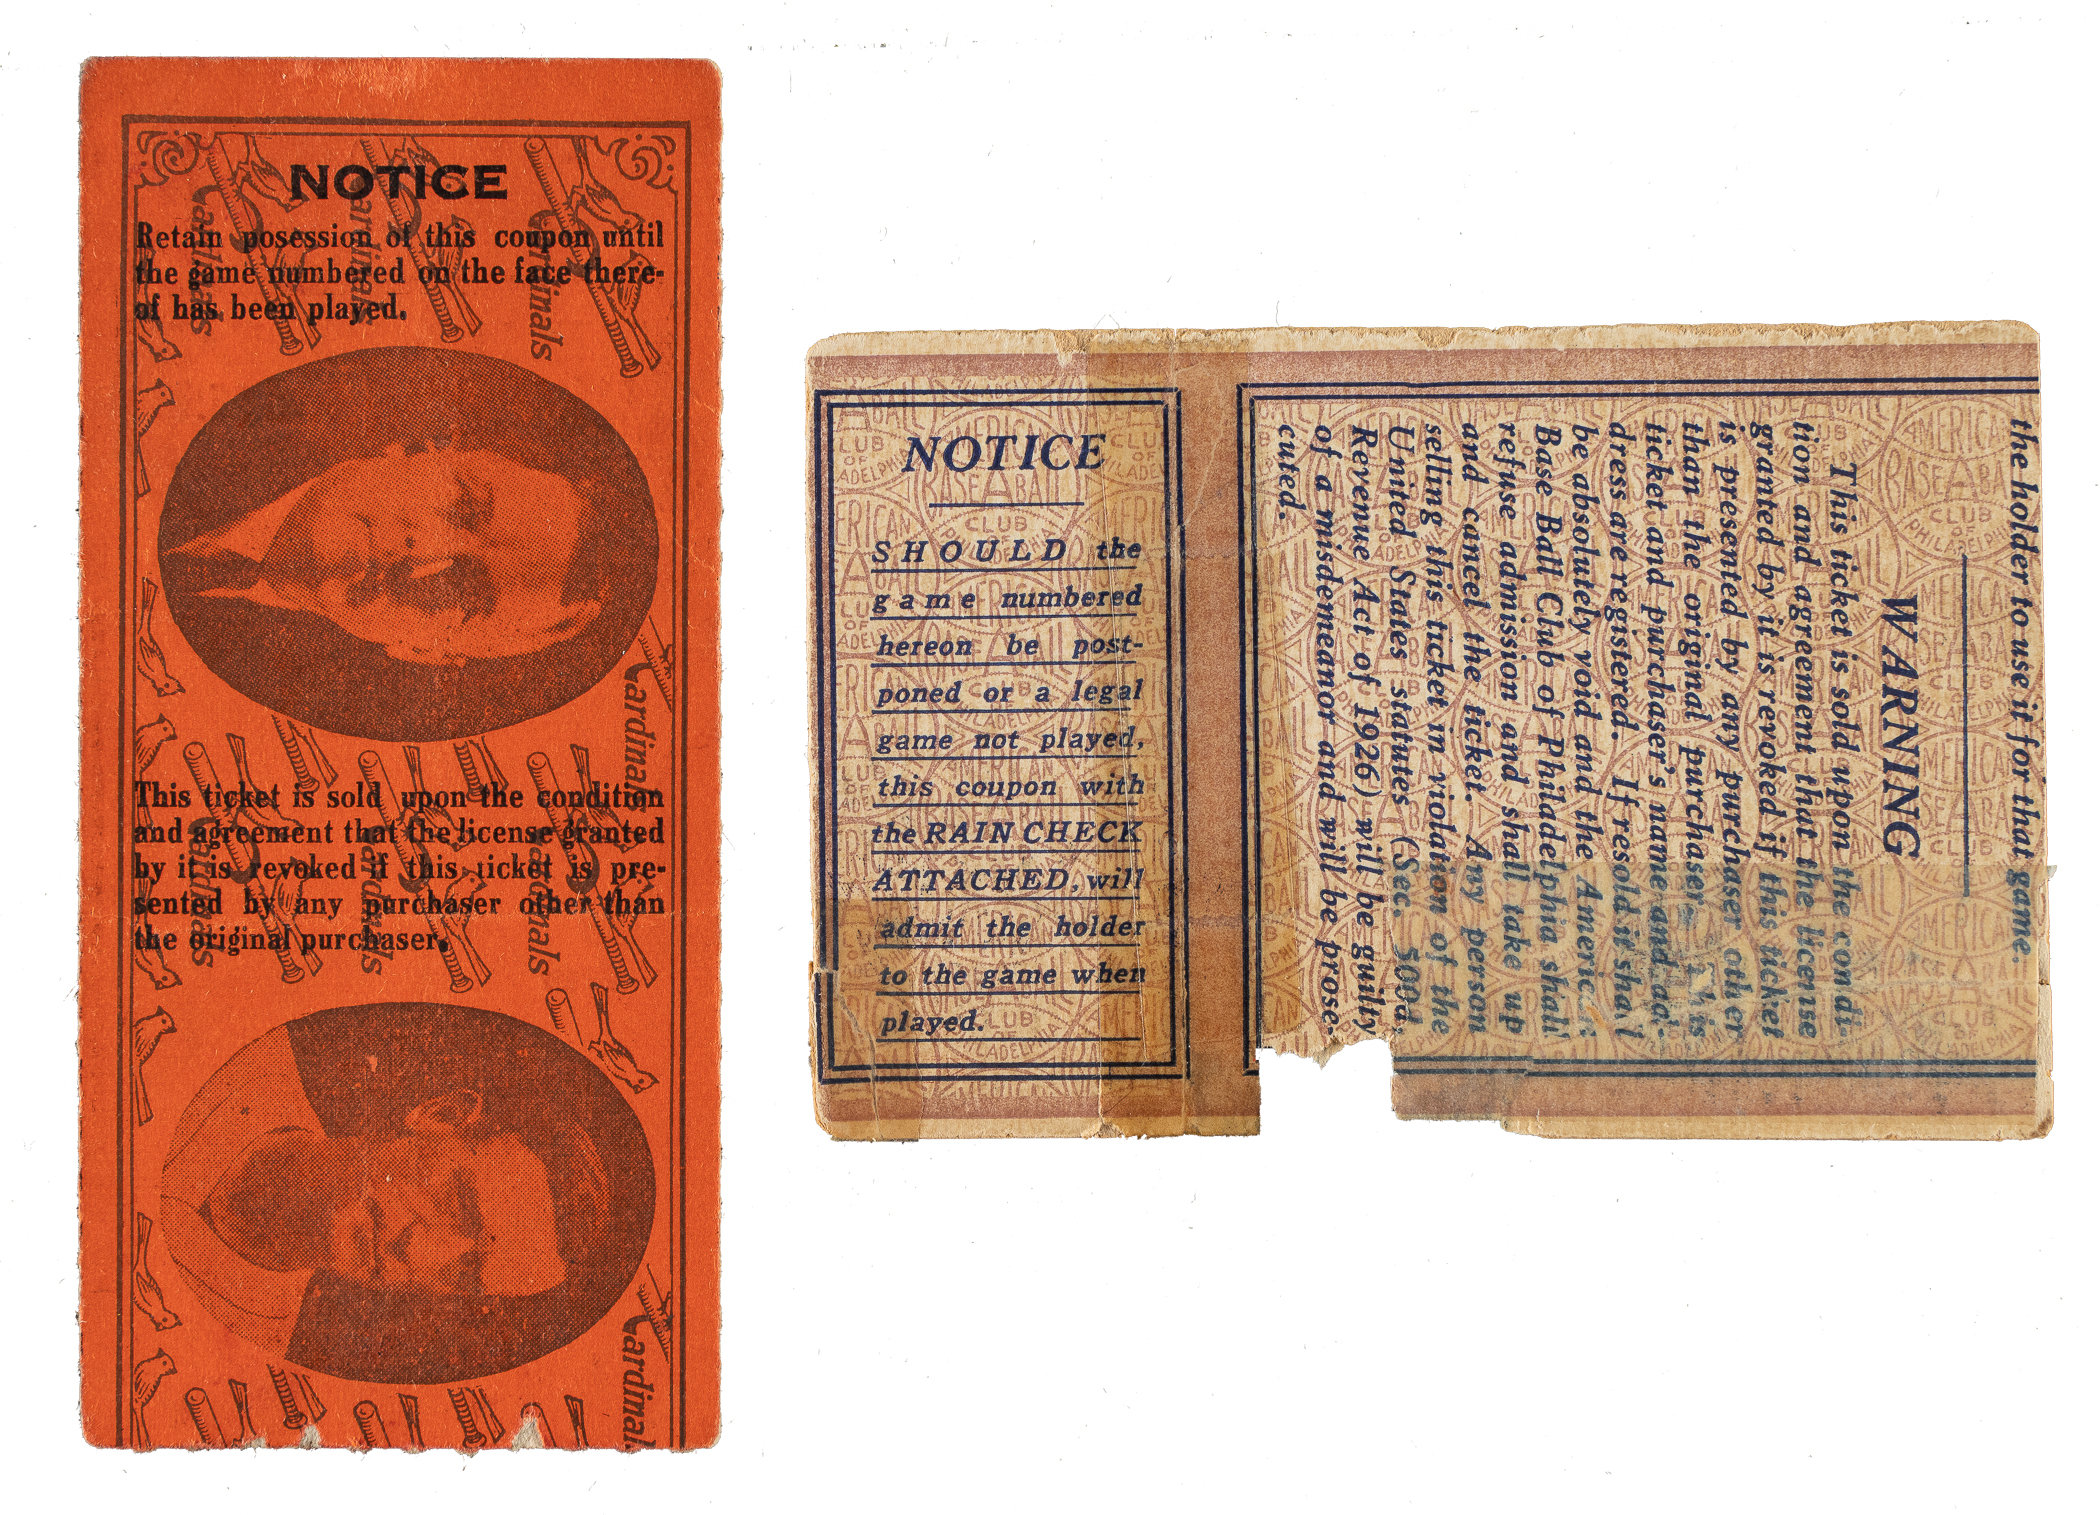 NOTICE
Retain posession of this coupon until
the game numbered on the face there-
of has been played.
This ticket is sold upon the condition
and agreement that the license granted
by it is revoked if this ticket is pre-
sented by any purchaser other than
the original purchaser.
Cardinals
Cardinals
Cardinals
Cardinals
Cardinals
Cardinals
Cardinals
Cardinals
NOTICE
SHOULD the
game numbered
hereon be post-
poned or a legal
game not played,
this coupon with
the RAIN CHECK
ATTACHED, will
admit the holder
to the game when
played.
the holder to use it for that game.
WARNING
This ticket is sold upon the condi-
tion and agreement that the license
granted by it is revoked if this ticket
is presented by any purchaser other
than the original purchaser.
ticket and purchaser's name and ad-
dress are registered. If resold it shall
be absolutely void and the
Base Ball Club of Philadelphia shall
refuse admission and shall take up
and cancel the ticket. Any person
selling this ticket in violation of the
United States statutes (Sec. 500d,
Revenue Act of 1926) will be guilty
of a misdemeanor and will be prose-
cuted.
AMERICAN
BASE BALL
CLUB
OF
PHILADELPHIA